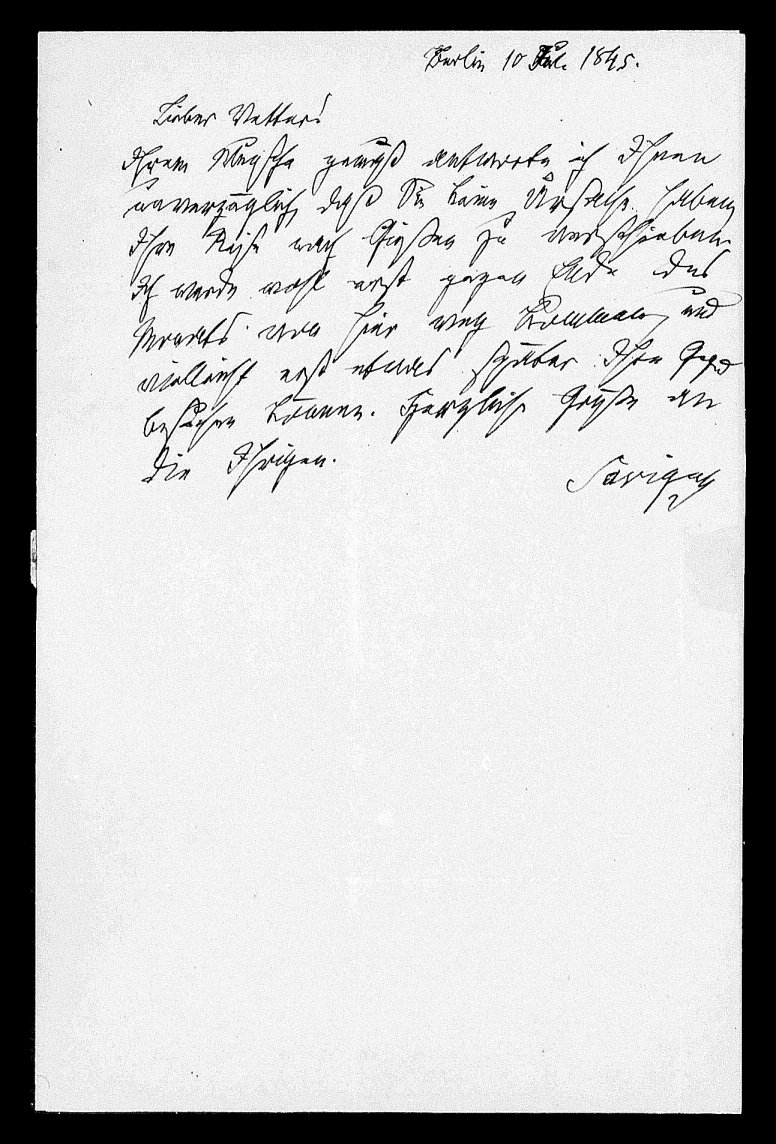 Berlin 10 Jul. 1845.
Lieber Vetter!
Ihrem Wunsche gemäß antworte ich Ihnen
unverzüglich, daß Sie keine Ursache haben
Ihre Reise nach Gießen zu verschieben.
Ich werde wohl erst gegen Ende des
Monats von hier weg kommen, und
vielleicht erst etwas später Ihre Gegend
besuchen können. Herzliche Grüße an
die Ihrigen.
Savigny